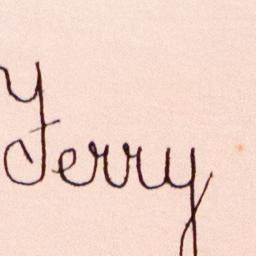 y
Terry